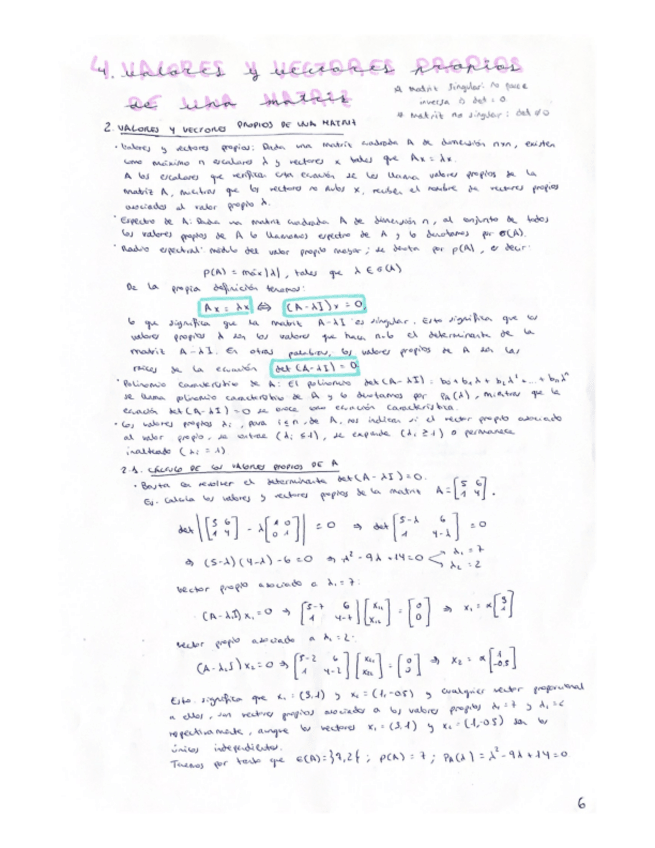 4. VALORES Y VECTORES PROPIOS
DE UNA MATRIZ
* matriz singular: no posee
inversa o det = 0
* matriz no singular: det ≠ 0
2. VALORES Y VECTORES PROPIOS DE UNA MATRIZ
· Valores y vectores propios: Dada una matriz cuadrada A de dimensión nxn, existen
como máximo n escalares λ y vectores x tales que Ax = λx.
A los escalares que verifica esta ecuación se les llama valores propios de la
matriz A, mientras que los vectores no nulos x, reciben el nombre de vectores propios
asociados al valor propio λ.
· Espectro de A: Dada una matriz cuadrada A de dimensión n, al conjunto de todos
los valores propios de A lo llamamos espectro de A y lo denotamos por σ(A).
· Radio espectral: módulo del valor propio mayor; se denota por ρ(A), es decir:
ρ(A) = máx|λ|, tales que λ ∈ σ(A)
De la propia definición tenemos:
Ax = λx ⇔ (A-λI)x = 0,
lo que significa que la matriz A-λI es singular. Esto significa que los
valores propios λ son los valores que hacen nulo el determinante de la
matriz A-λI. En otras palabras, los valores propios de A son las
raíces de la ecuación det(A-λI) = 0
· Polinomio característico de A: El polinomio det(A-λI) = b0+b1λ+b2λ²+...+bnλⁿ
se llama polinomio característico de A y lo denotamos por PA(λ), mientras que la
ecuación det(A-λI)=0 se conoce como ecuación característica.
· Los valores propios λi, para i≤n, de A, nos indican si el vector propio asociado
al valor propio, se contrae (λi ≤1), se expande (λi ≥1) o permanece
inalterado (λi = 1)
2.1. CÁLCULO DE LOS VALORES PROPIOS DE A
· Basta con resolver el determinante det(A-λI)=0.
Ej. Calcula los valores y vectores propios de la matriz A = [5 6; 1 4].
det |[5 6; 1 4] - λ[1 0; 0 1]| = 0 ⇒ det [5-λ 6; 1 4-λ] = 0
⇒ (5-λ)(4-λ)-6=0 ⇒ λ²-9λ+14=0 λ1 = 7 λ2 = 2
Vector propio asociado a λ1 = 7:
(A-λ1I)x1=0 ⇒ [5-7 6; 1 4-7][x11; x12] = [0; 0] ⇒ x1 = α[3; 1]
Vector propio asociado a λ2 = 2:
(A-λ2I)x2=0 ⇒ [5-2 6; 1 4-2][x21; x22] = [0; 0] ⇒ x2 = α[1; -0.5]
Esto significa que x1 = (3,1) y x2 = (1,-0.5) y cualquier vector proporcional
a ellos, son vectores propios asociados a los valores propios λ1=7 y λ2=2
respectivamente, aunque los vectores x1 = (3,1) y x2 = (1,-0.5) son los
únicos independientes.
Tenemos por tanto que σ(A)={7,2}; ρ(A) = 7; PA(λ) = λ²-9λ+14=0.
6